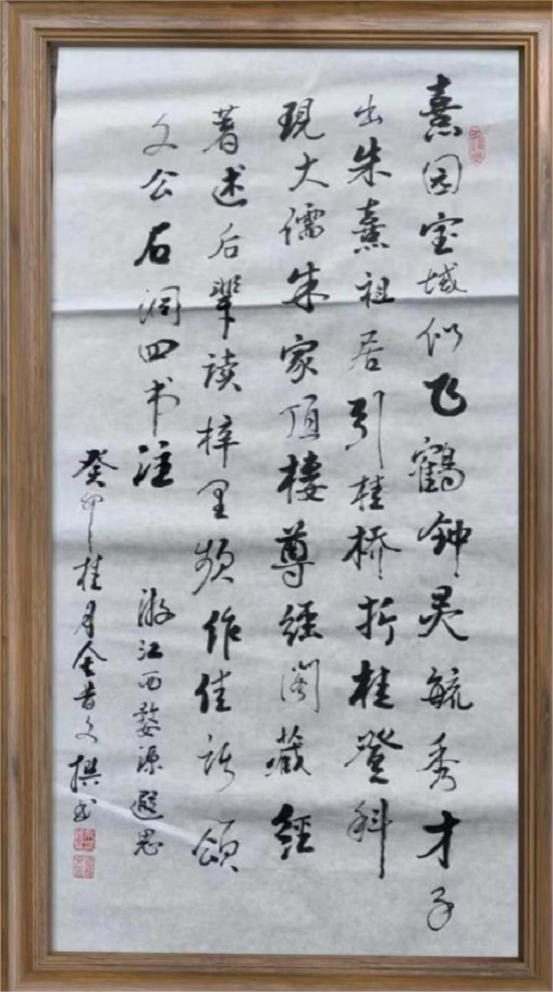 熹园宝域似飞鹤钟灵毓秀才子
出朱熹祖居引桂桥折桂登科
现大儒朱家顶楼尊经阁藏经
著述后辈读梓里频作佳话颂
文公石洞四书注
游江西婺源遐思
癸卯桂月金昔文撰书